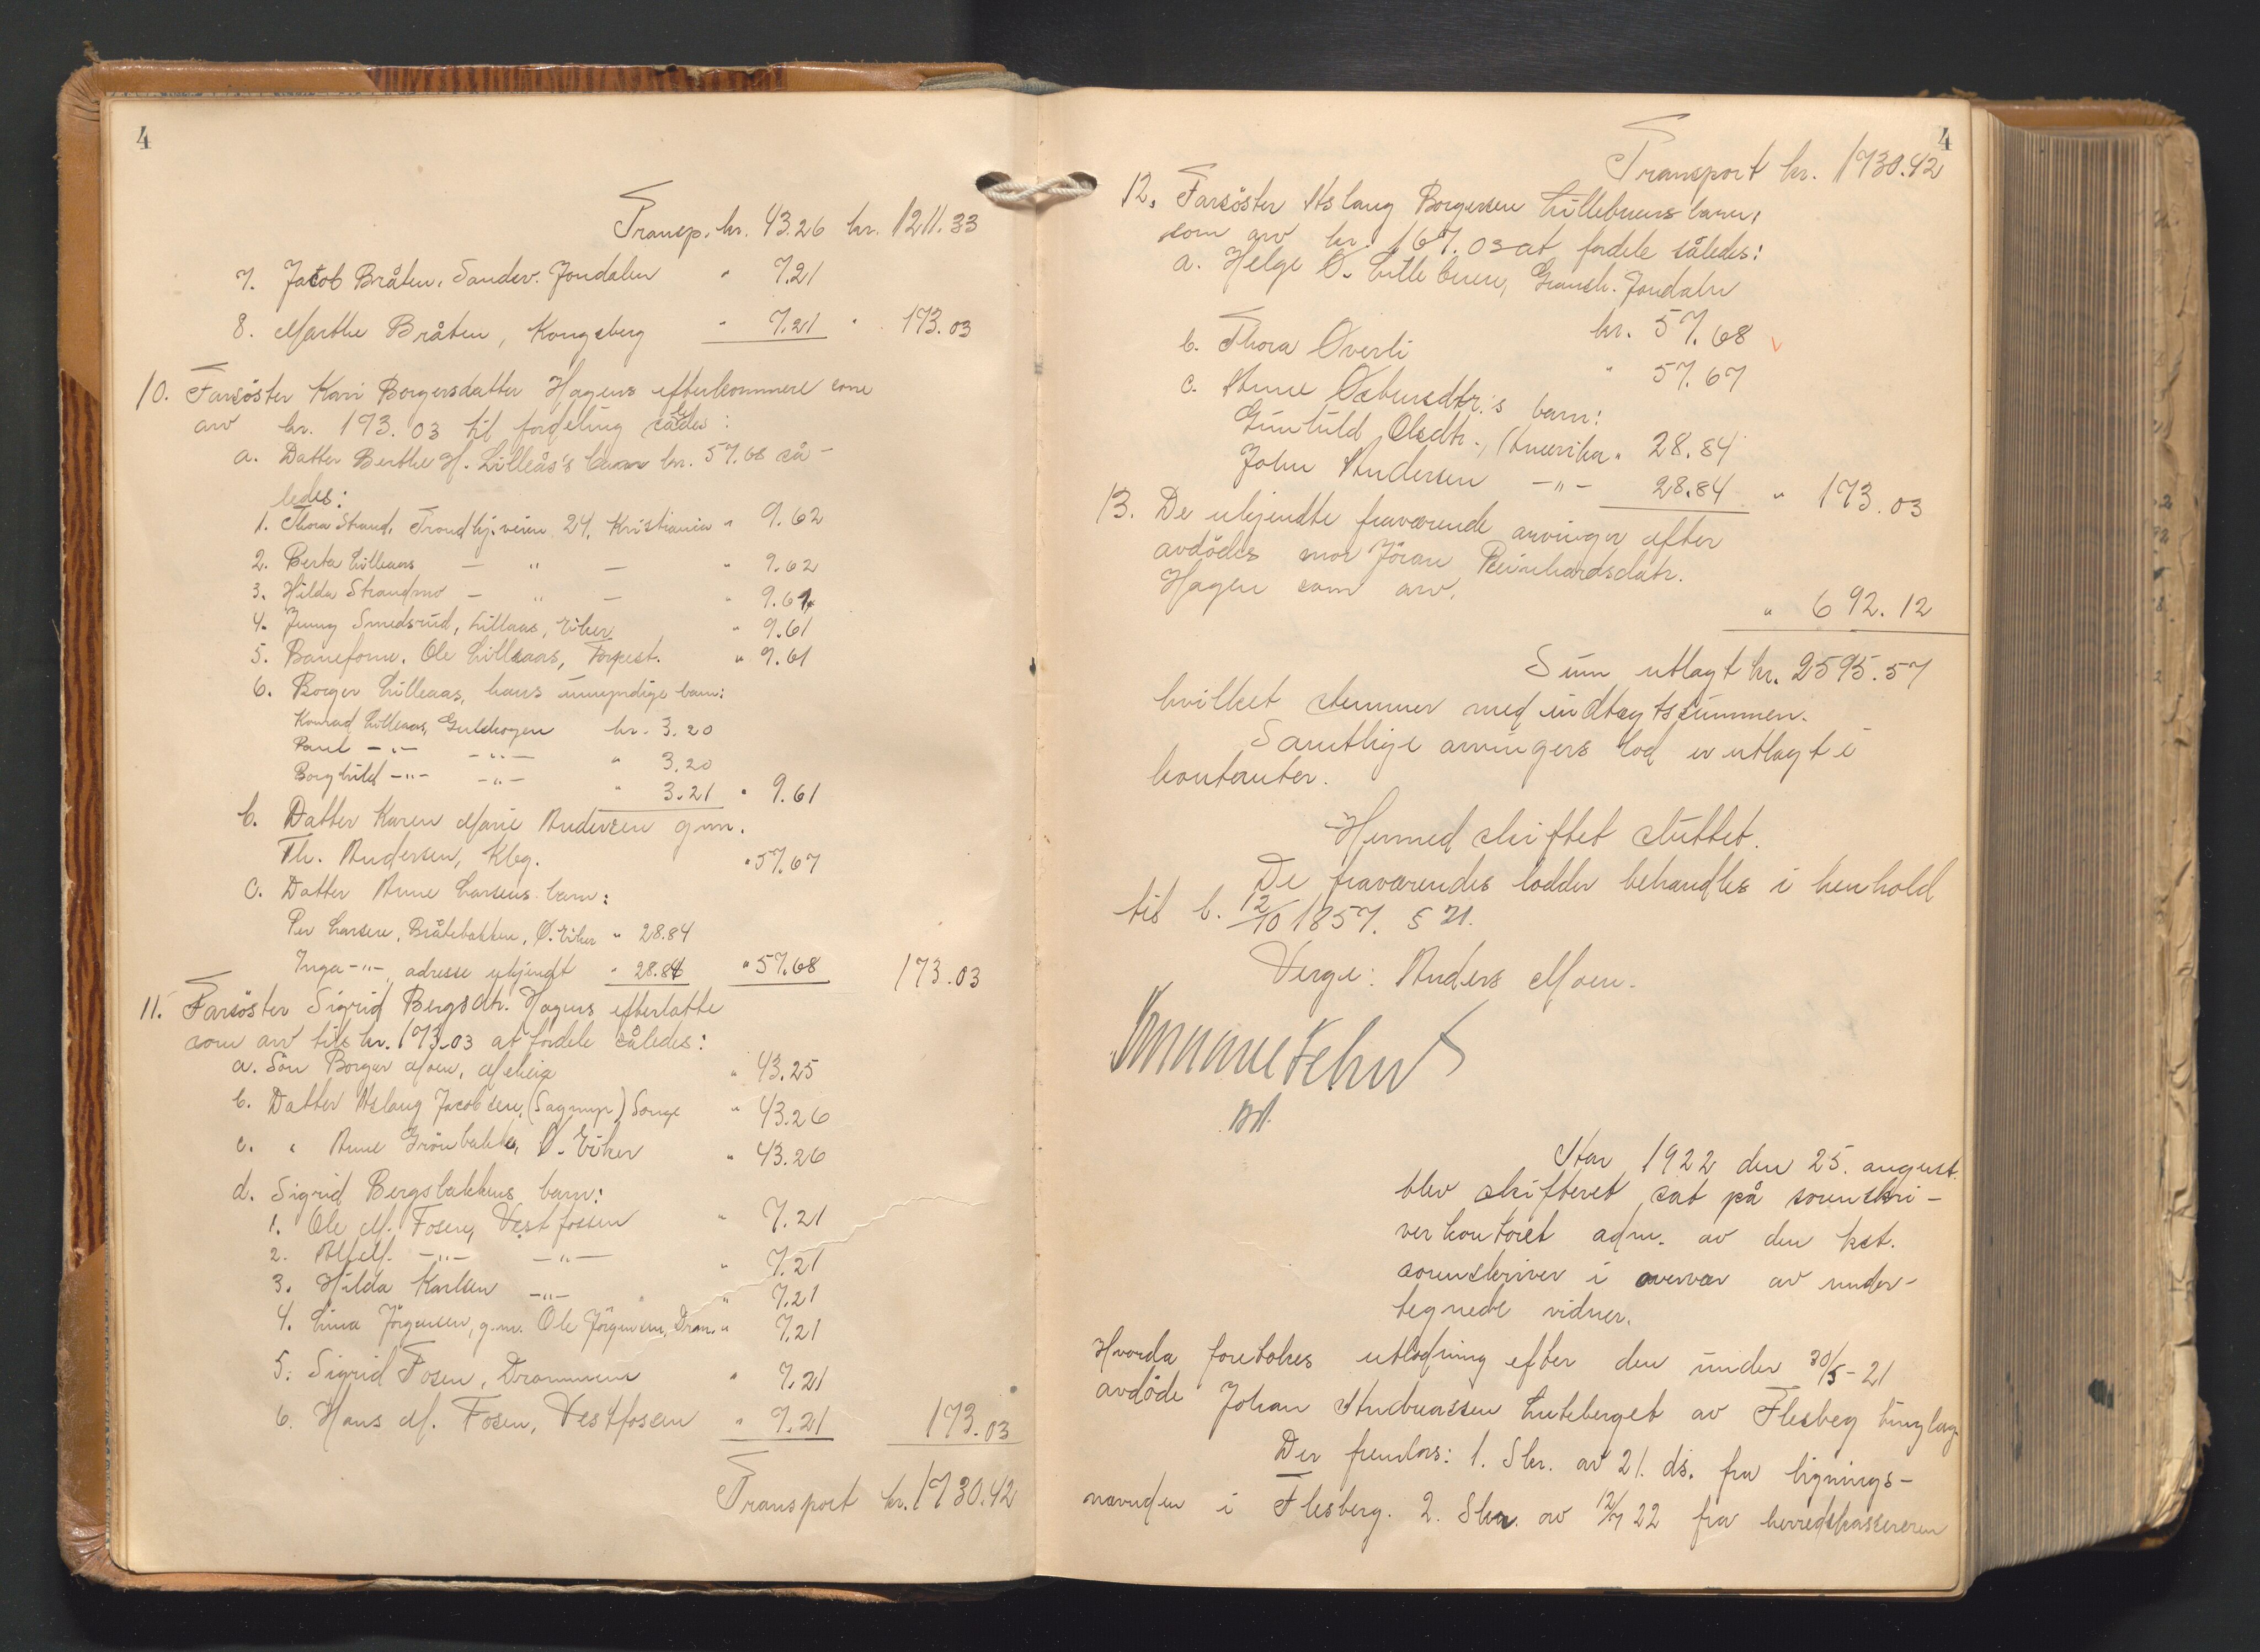 4
Transp. kr. 43.26 kr. 1211.33
7. Jacob Bråten, Sandsv. Jondalen " 7.21
8. Marthe Bråten, Kongsberg " 7.21 " 173.03
10. Farsöster Kari Borgersdatter Hagens efterkommere som
arv kr. 173.03 til fordeling således:
a. Datter Berthe H. Lilleås's barn kr. 57.68 så-
ledes:
1. Thora Strand, Trondhj.veien 24, Kristiania " 9.62
2. Berta Lilleaas — " — " 9.62
3. Hilda Strandmo — " — " 9.61
4. Jenny Smedsrud, Lillaas, Eiker " 9.61
5. Baneform. Ole Lilleaas, " 9.61
6. Borger Lilleaas, hans umyndige barn:
Konrad Lilleaas, Guldskogen kr. 3.20
Paul —"— —"— " 3.20
Borghild —"— —"— " 3.21 " 9.61
b. Datter Karen Marie Andersen g.m.
Th. Andersen, Kbg. " 57.67
C. Datter Anne Larsens barn:
Per Larsen, Bråtebakken, Ø. Eiker " 28.84
Inga —"—, adresse ukjendt " 28.84 " 57.68 173.03
11. Farsöster Sigrid Bergsdtr. Hagens efterlatte
som arv tils kr. 173.03 at fordele således:
a. Sön Borger Moen, Modum " 43.25
b. Datter Aslaug Jacobsen, (Sagmyr) Sverige " 43.26
c. " Anne Grönbakke, Ø. Eiker " 43.26
d. Sigrid Bergsbakkens barn:
1. Ole M. Fosen, Vestfossen " 7.21
2. Alf M. —"— —"— " 7.21
3. Hilda Karlsen —"— " 7.21
4. Lina Jörgensen, g.m. Ole Jörgensen, Dram. " 7.21
5. Sigrid Fosen, Drammen " 7.21
6. Hans M. Fosen, Vestfosen " 7.21 173.03
Transport kr. 1730.42
4
Transport kr. 1730.42
12. Farsöster Aslaug Borgersen Lillebuens barn,
som arv kr. 167.03 at fordele således:
a. Helge O. Lillebuen, Jondalen
kr. 57.68
b. Thora Överli " 57.67
c. Anne Östensdtr.'s barn:
Gunhild Olsdtr., Amerika " 28.84
John Andersen —"— 28.84 " 173.03
13. De ukjendte fraværende arvinger efter
avdödes mor Jöran Reinhardsdatr.
Hagen som arv, " 692.12
Sum utlagt kr. 2595.57
hvilket stemmer med indtægtssummen.
Samtlige arvingers lod er utlagt i
kontanter.
Hermed skiftet sluttet.
De fraværendes lodder behandles i henhold
til l. 12/10 1857. § 21.
Verge: Anders Moen.
Aar 1922 den 25. august
blev skifteret sat på sorenskri-
verkontoret adm. av den kst.
sorenskriver i overvær av under-
tegnede vidner.
Hvorda foretokes utlodning efter den under 30/5-21
avdöde Johan Andreassen Luteberget av Flesberg tinglag.
Der fremlaes: 1. Skr. av 21. ds. fra lignings-
nævnden i Flesberg. 2. Skr. av 12/7 22 fra herredskassereren